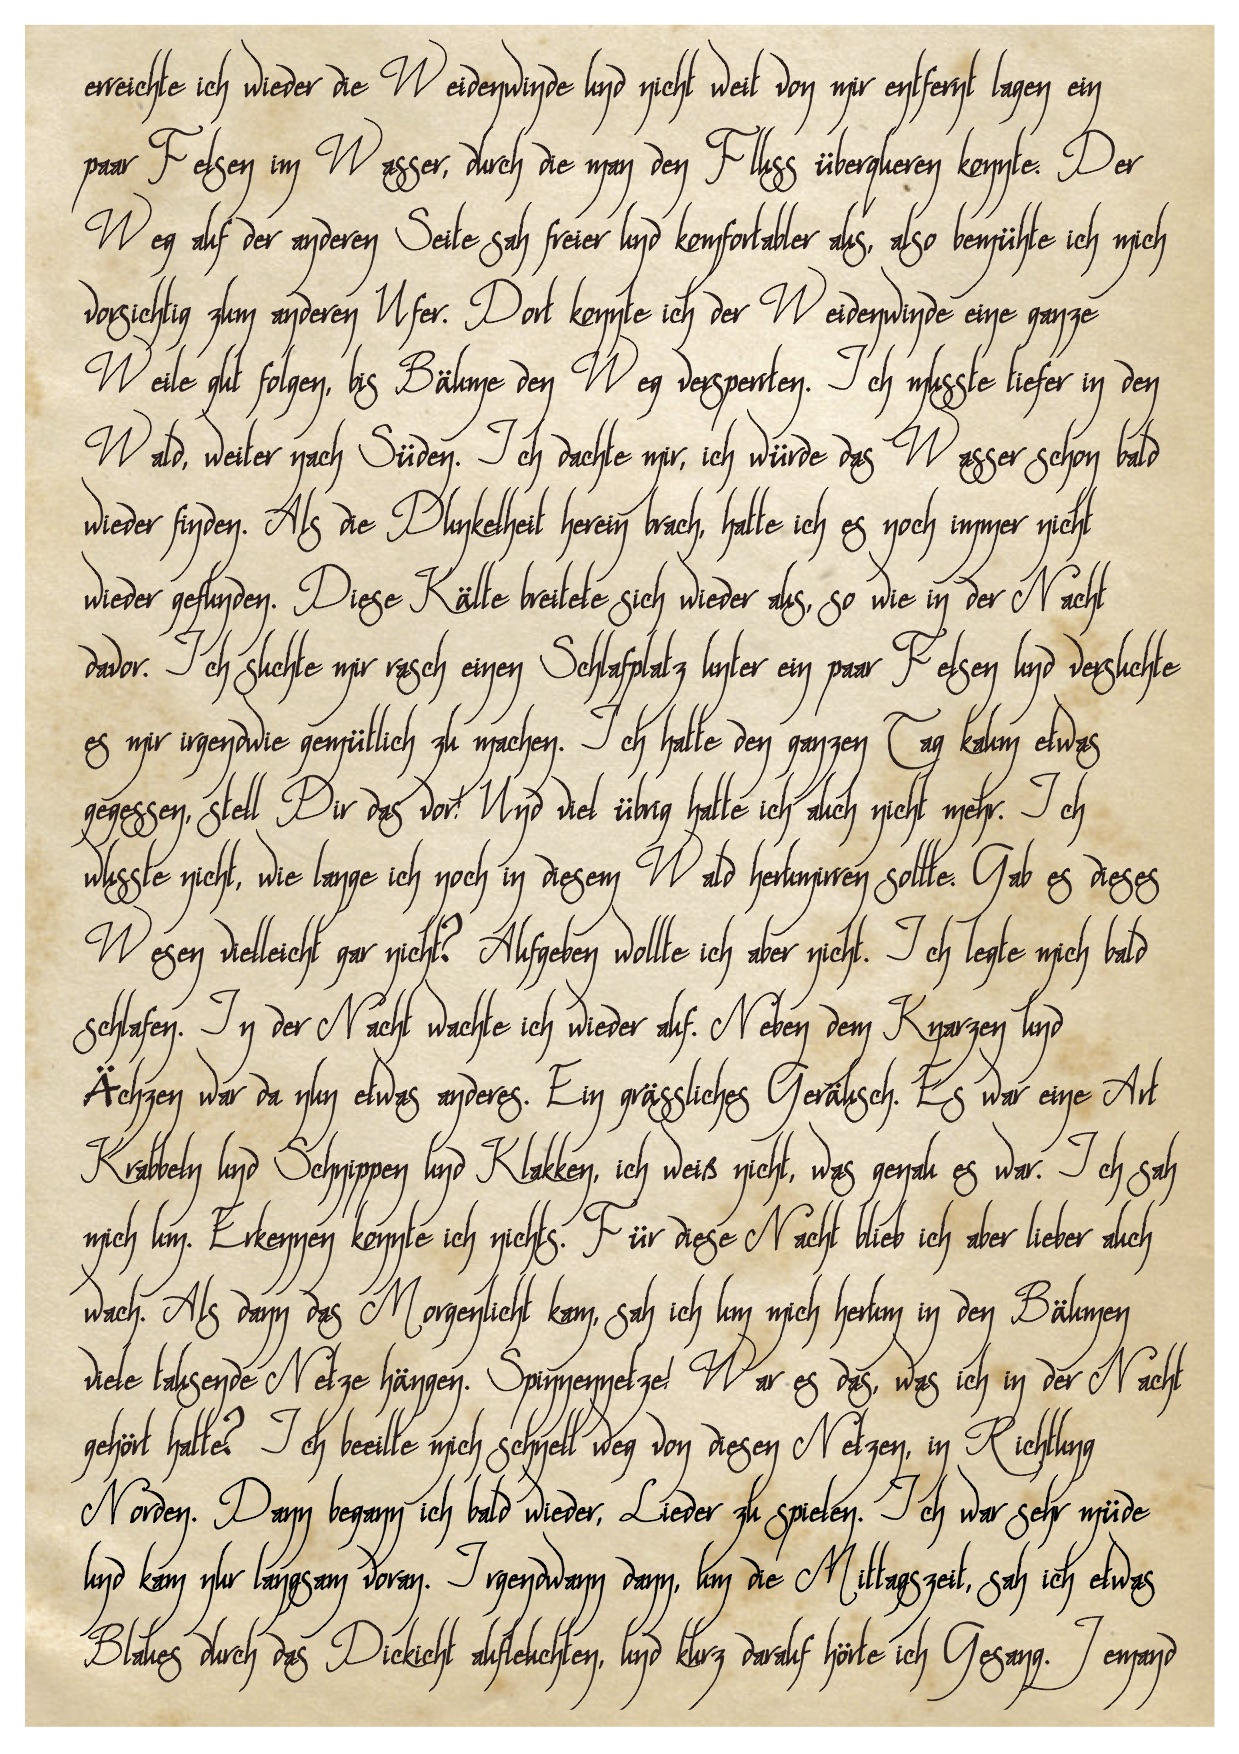 erreichte ich wieder die Weidenwinde und nicht weit von mir entfernt lagen ein
paar Felsen im Wasser, durch die man den Fluss überqueren konnte. Der
Weg auf der anderen Seite sah freier und komfortabler aus, also bemühte ich mich
vorsichtig zum anderen Ufer. Dort konnte ich der Weidenwinde eine ganze
Weile gut folgen, bis Bäume den Weg versperrten. Ich musste tiefer in den
Wald, weiter nach Süden. Ich dachte mir, ich würde das Wasser schon bald
wieder finden. Als die Dunkelheit herein brach, hatte ich es noch immer nicht
wieder gefunden. Diese Kälte breitete sich wieder aus, so wie in der Nacht
davor. Ich suchte mir rasch einen Schlafplatz unter ein paar Felsen und versuchte
es mir irgendwie gemütlich zu machen. Ich hatte den ganzen Tag kaum etwas
gegessen, stell Dir das vor! Und viel übrig hatte ich auch nicht mehr. Ich
wusste nicht, wie lange ich noch in diesem Wald herumirren sollte. Gab es dieses
Wesen vielleicht gar nicht? Aufgeben wollte ich aber nicht. Ich legte mich bald
schlafen. In der Nacht wachte ich wieder auf. Neben dem Knarzen und
Ächzen war da nun etwas anderes. Ein grässliches Geräusch. Es war eine Art
Krabbeln und Schnippen und Klakken, ich weiß nicht, was genau es war. Ich sah
mich um. Erkennen konnte ich nichts. Für diese Nacht blieb ich aber lieber auch
wach. Als dann das Morgenlicht kam, sah ich um mich herum in den Bäumen
viele tausende Netze hängen. Spinnennetze! War es das, was ich in der Nacht
gehört hatte? Ich beeilte mich schnell weg von diesen Netzen, in Richtung
Norden. Dann begann ich bald wieder, Lieder zu spielen. Ich war sehr müde
und kam nur langsam voran. Irgendwann dann, um die Mittagszeit, sah ich etwas
Blaues durch das Dickicht aufleuchten, und kurz darauf hörte ich Gesang. Jemand